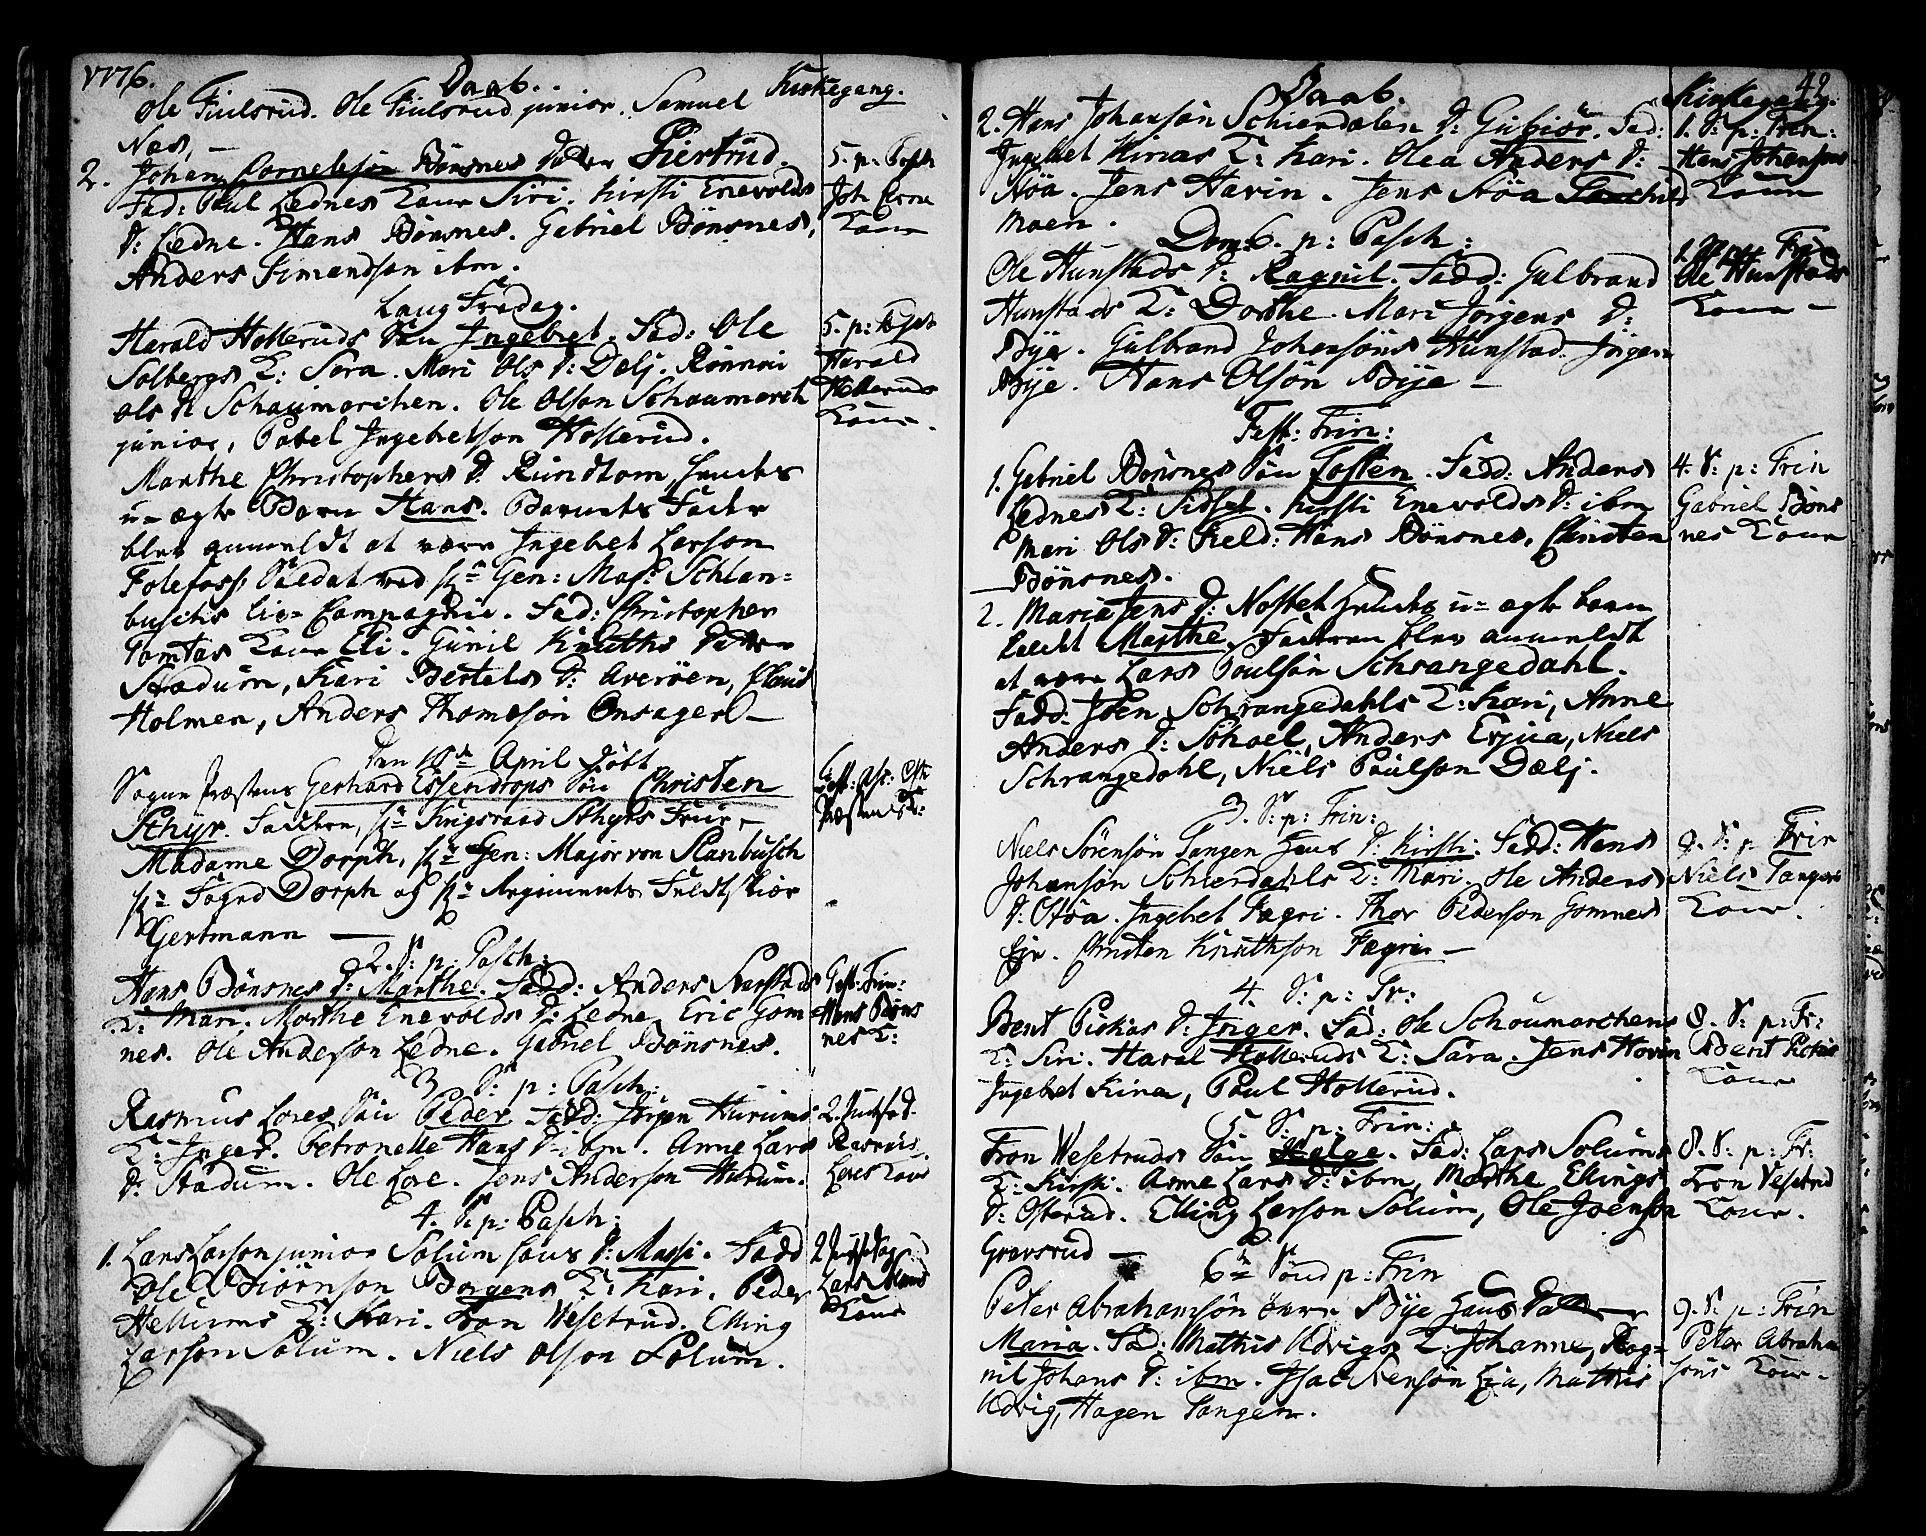 1776. Daab. Kirkegang.
Ole Fiulsrud. Ole Fiulsrud junior. Samuel
Næs, —
2. Johan Cornelesøn Bönsnes Datter Giertrud.
Fad: Paul Lednes Kone Siri. Kirsti Enevolds
D: Ledne. Hans Bönsnes. Gabriel Bönsnes,
Anders Simensøn ibm.
5. p: Pasch
Joh Corne
Kone
Lang Fredag.
Harald Hollerud's Søn Ingebret. Fad: Ole
Solbergs K: Sara. Mari Ols D: Dælj. Rönnoi
Ols D: Schoumarchen. Ole Olson Schoumarch
junior, Povel Ingebretson Hollerud.
5. p: Pasch
Harald
Holleruds
Kone.
Marthe Christophers D: Rundtom,
u-ægte Barn Hans. Barnets Fader
blev anmeldt at være Ingebret Larson
Folefoss, Soldat ved Hr. Gen: Maj: Schlan-
buschs liv Compagnie. Fad: Christopher
Tomtes Kone Eli. Gunil Knuths Datter
Stadum, Kari Bertels D: Averöen,
Holmen, Anders Thomesön Onsager —
Den 18de April döbt
Sogne Præstens Gerhard Essendrops Sön Christen
Schyr. Faddere, Hr. Krigsraad Schyrs Frue,
Madame Dorph, Hr. Gen: Major von Slanbusch
Hr. Fogd Dorph og Hr. Regiments Feldtskiær
Gertmann —
2. S: p: Pasch:
Hans Bönsnes D: Marthe. Fadd: Anders Svarstads
K: Mari. Marthe Enevolds D: Ledne, Eric Gom-
nes. Ole Anderson Ledne. Gabriel Bönsnes.
Fest: Trin:
Hans Böns
nes K:
3 S: p: Pasch:
Rasmus Lores Sön Peder. Fadd: Jörgen Hurums
K: Inger. Petronelle Hans D: ibm. Anne Lars
D: Stadum. Ole Lore. Jens Anderson Hurum.
Rasmus
Lores Kone
4. S: p: Pasch:
1. Lars Larson junior Solum hans D: Massi. Fadd
Ole Biörnson Borgens K: Kari. Peder
Hellums K: Kari. Tron Wesetrud. Elling
Larson Solum. Niels Olson Solum.
Kone
Daab. Kirkegang. 42
2. Hans Johansön Schierdalen D: Gubiör. Fad:
Ingebret Kinas K: Kari. Olea Anders D:
Stöa. Jens Havin. Jens Stöa
Moen.
1. S: p: Trin:
Hans Johansøns
Kone
Dom: 6. p: Pasch:
Ole Hunstads D: Ragnil. Fadd: Gulbrand
Hunstads K: Dorthe. Mari Jörgens D:
Bye. Gulbrand Johansöns Hunstad. Jörgen
Bye. Hans Olsön Bye —
Ole Hunstads
Kone —
Fest: Trin:
1. Gabriel Bönsnes Sön Tosten. Fadd: Anders
Lednes K: Sidsel. Kirsti Enevolds D: ibm
Mari Ols D: Field. Hans Bönsnes. Christen
Bönsnes.
4. S: p: Trin
Gabriel Böns
nes Kone
2. Maria Jens D: u-ægte barn
kaldt Marthe. Faderen blev anmeldt
at være Lars Poulsön Schrangedahl.
Fadd: Joen Schrangedahls K: Kari, Anne
Anders D: Anders Niels
Schrangedahl, Niels Poulson Dælj.
3. S: p: Trin:
Niels Sörensön Tangen hans D: Kirsti. Fadd: Hans
Johansön Schierdahls K: Mari. Ole Anders
D: Stöa. Ingebret Fægri. Thor Pederson Gomnes
Eje. Christen Knuthson Fægri —
9. S: p: Trin
Niels Tangens
Kone.
4. S: p: Tr:
Bent Pickas D: Inger. Fad: Ole Schoumarchens
K: Siri. Haral Holleruds K: Sara. Jens Hovin
Ingebret Kina, Poul Hollerud.
8. S: p: Tr:
Bent Pickas
Kone
5. S: p: Trin:
Tron Wesetruds Sön Helge. Fad: Lars Solums
K: Kirsti. Anne Lars D: ibm, Marthe Ellings
D: Osterud. Elling Larson Solum, Ole Joenson
Gravsrud —
8. S: p: Tr:
Tron Vesetrud
Kone.
6te Sönd p: Trin
Peter Abrahamsön övre Bye hans Datter
Maria. Fad: Mathis Udvigs K: Johanne, Rag-
nil Johans D: ibm. Isac Stensön Lia, Mathis
Udvig, Hagen Tangen.
9. S: p: Trin
Peter Abraham
söns Kone.